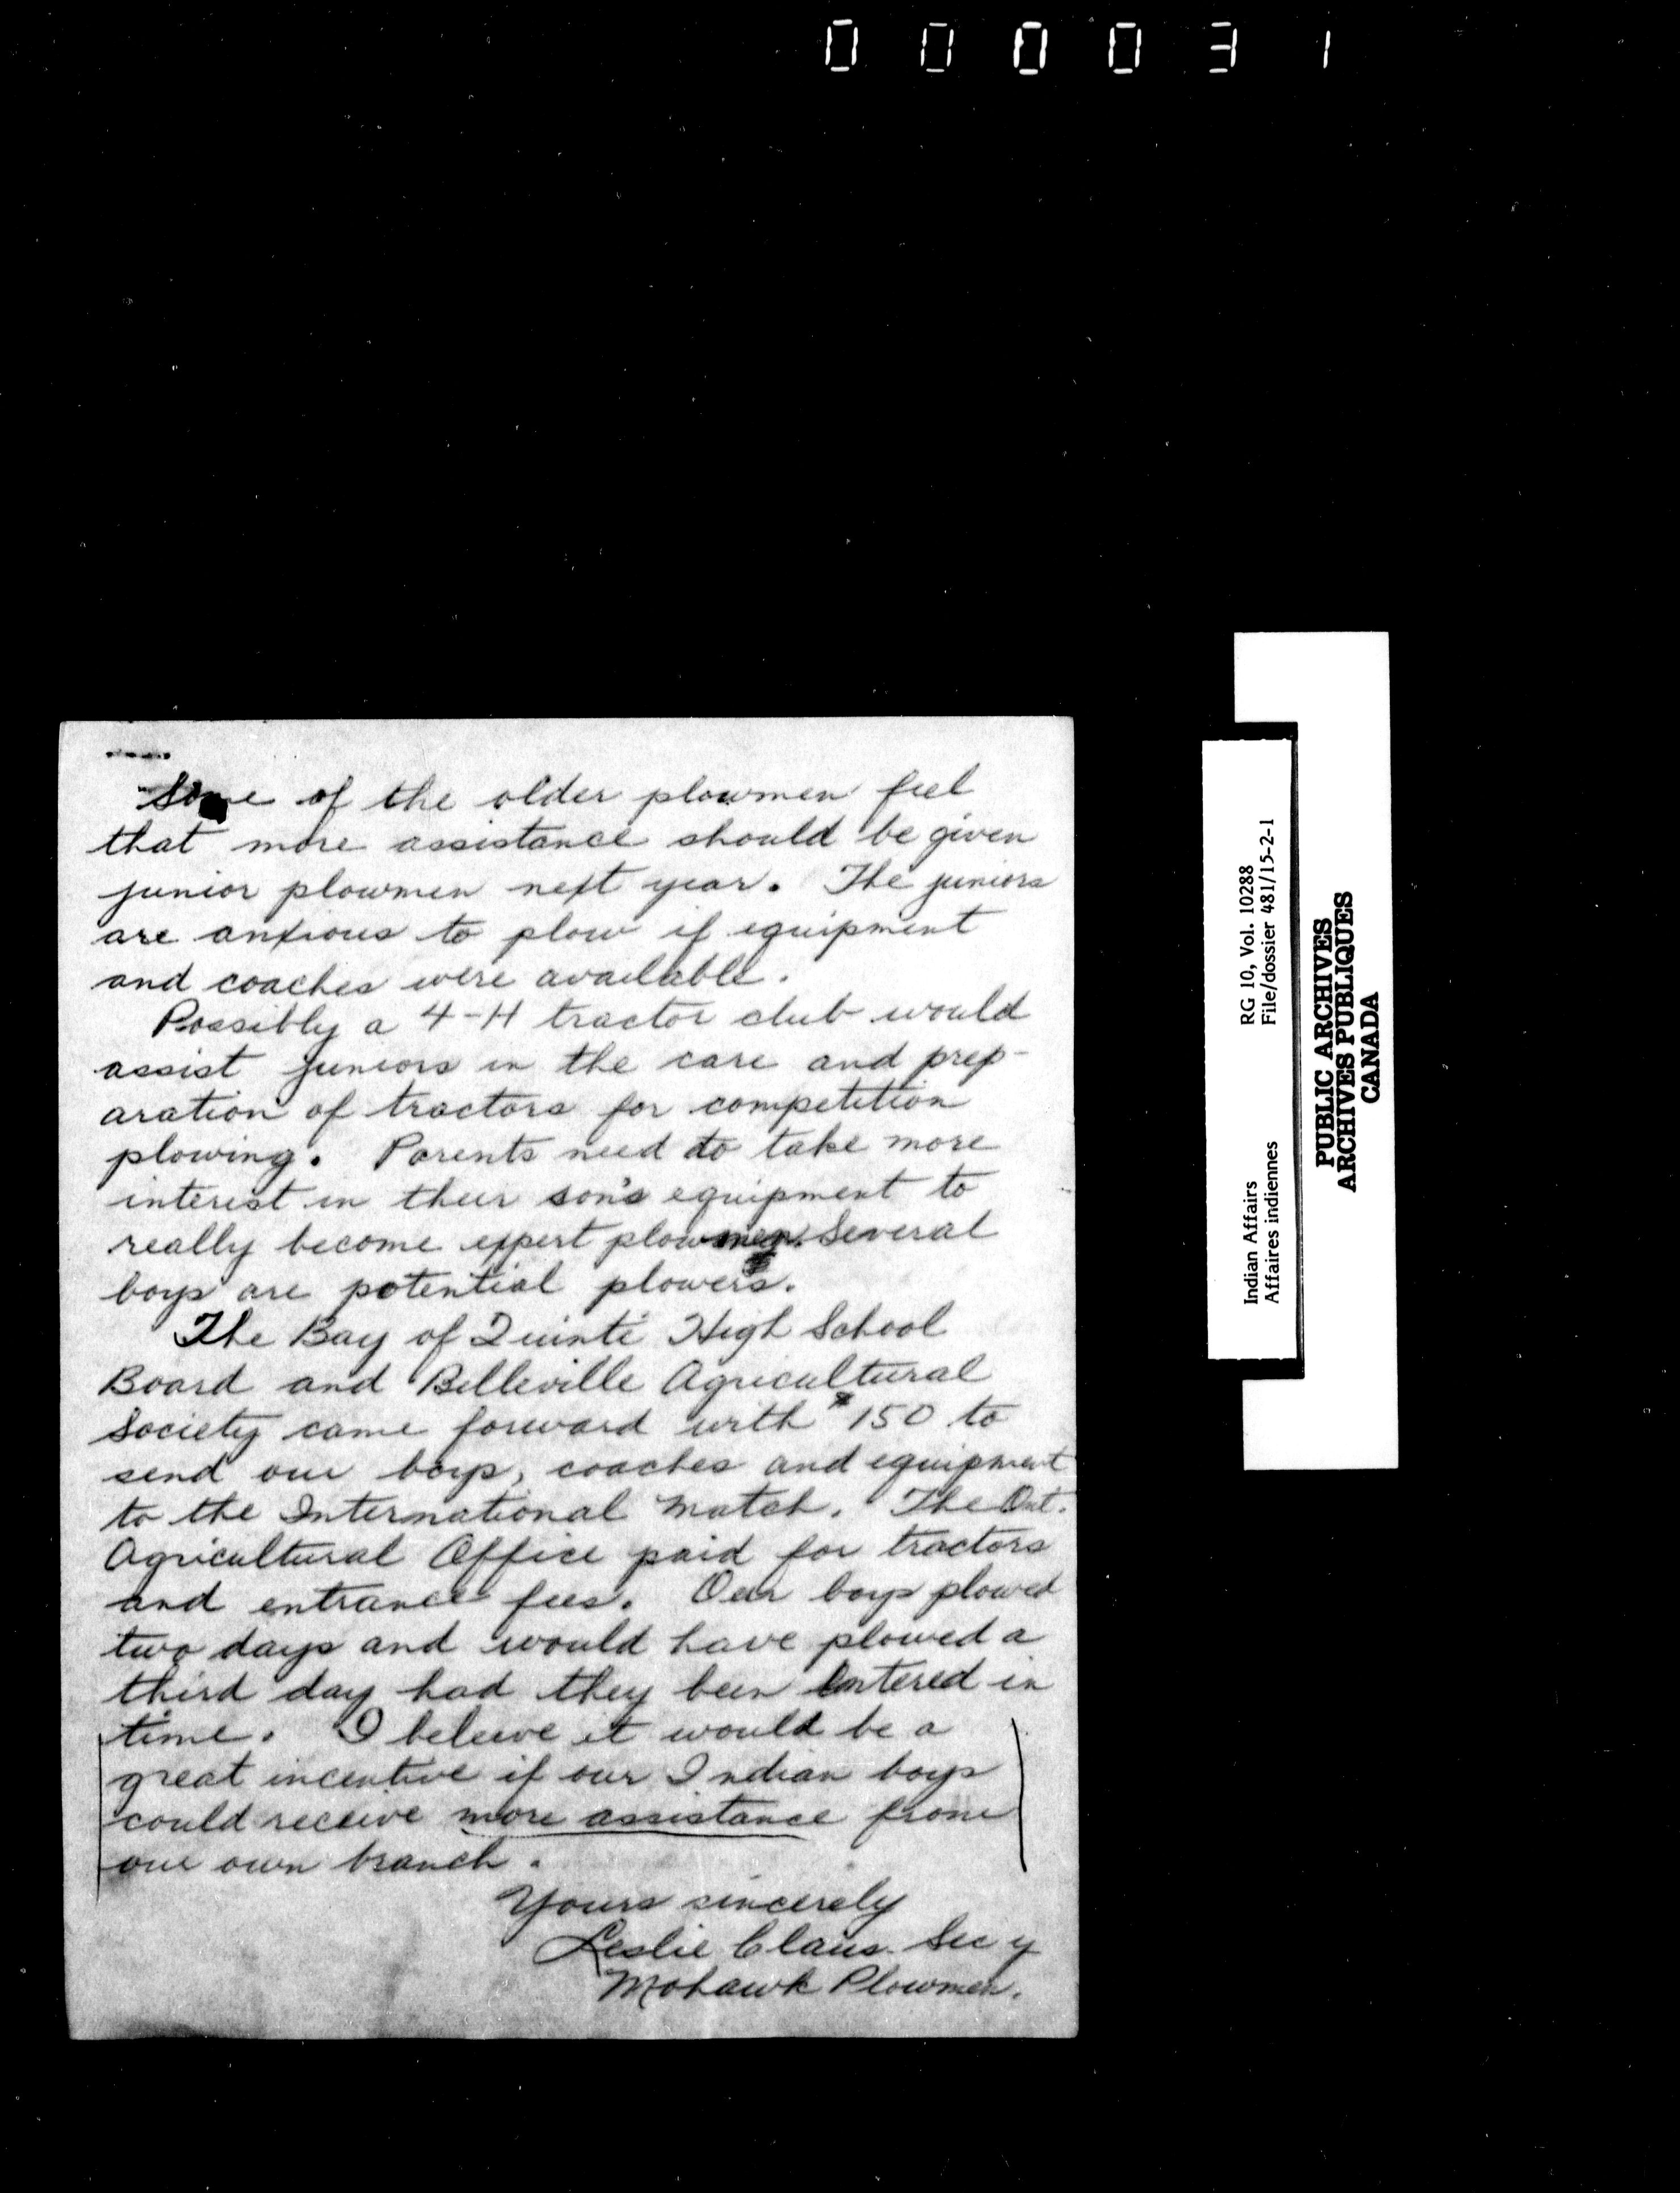 000031
Some of the older plowmen feel
that more assistance should be given
junior plowmen next year. The juniors
are anxious to plow if equipment
and coaches were available.
Possibly a 4-H tractor club would
assist juniors in the care and prep-
aration of tractors for competition
plowing. Parents need to take more
interest in their son's equipment to
really become expert plowmen. Several
boys are potential plowers.
The Bay of Quinte High School
Board and Belleville Agricultural
Society came forward with $150 to
send our boys, coaches and equipment
to the International Match. The Ont.
Agricultural Office paid for tractors
and entrance fees. Our boys plowed
two days and would have plowed a
third day had they been entered in
time. I beleive it would be a
great incentive if our Indian boys
could receive more assistance from
our own branch.
Yours sincerely
Leslie Claus. Sec'y
Mohawk Plowmen.
Indian Affairs RG 10, Vol. 10288
Affaires indiennes File/dossier 481/15-2-1
PUBLIC ARCHIVES
ARCHIVES PUBLIQUES
CANADA